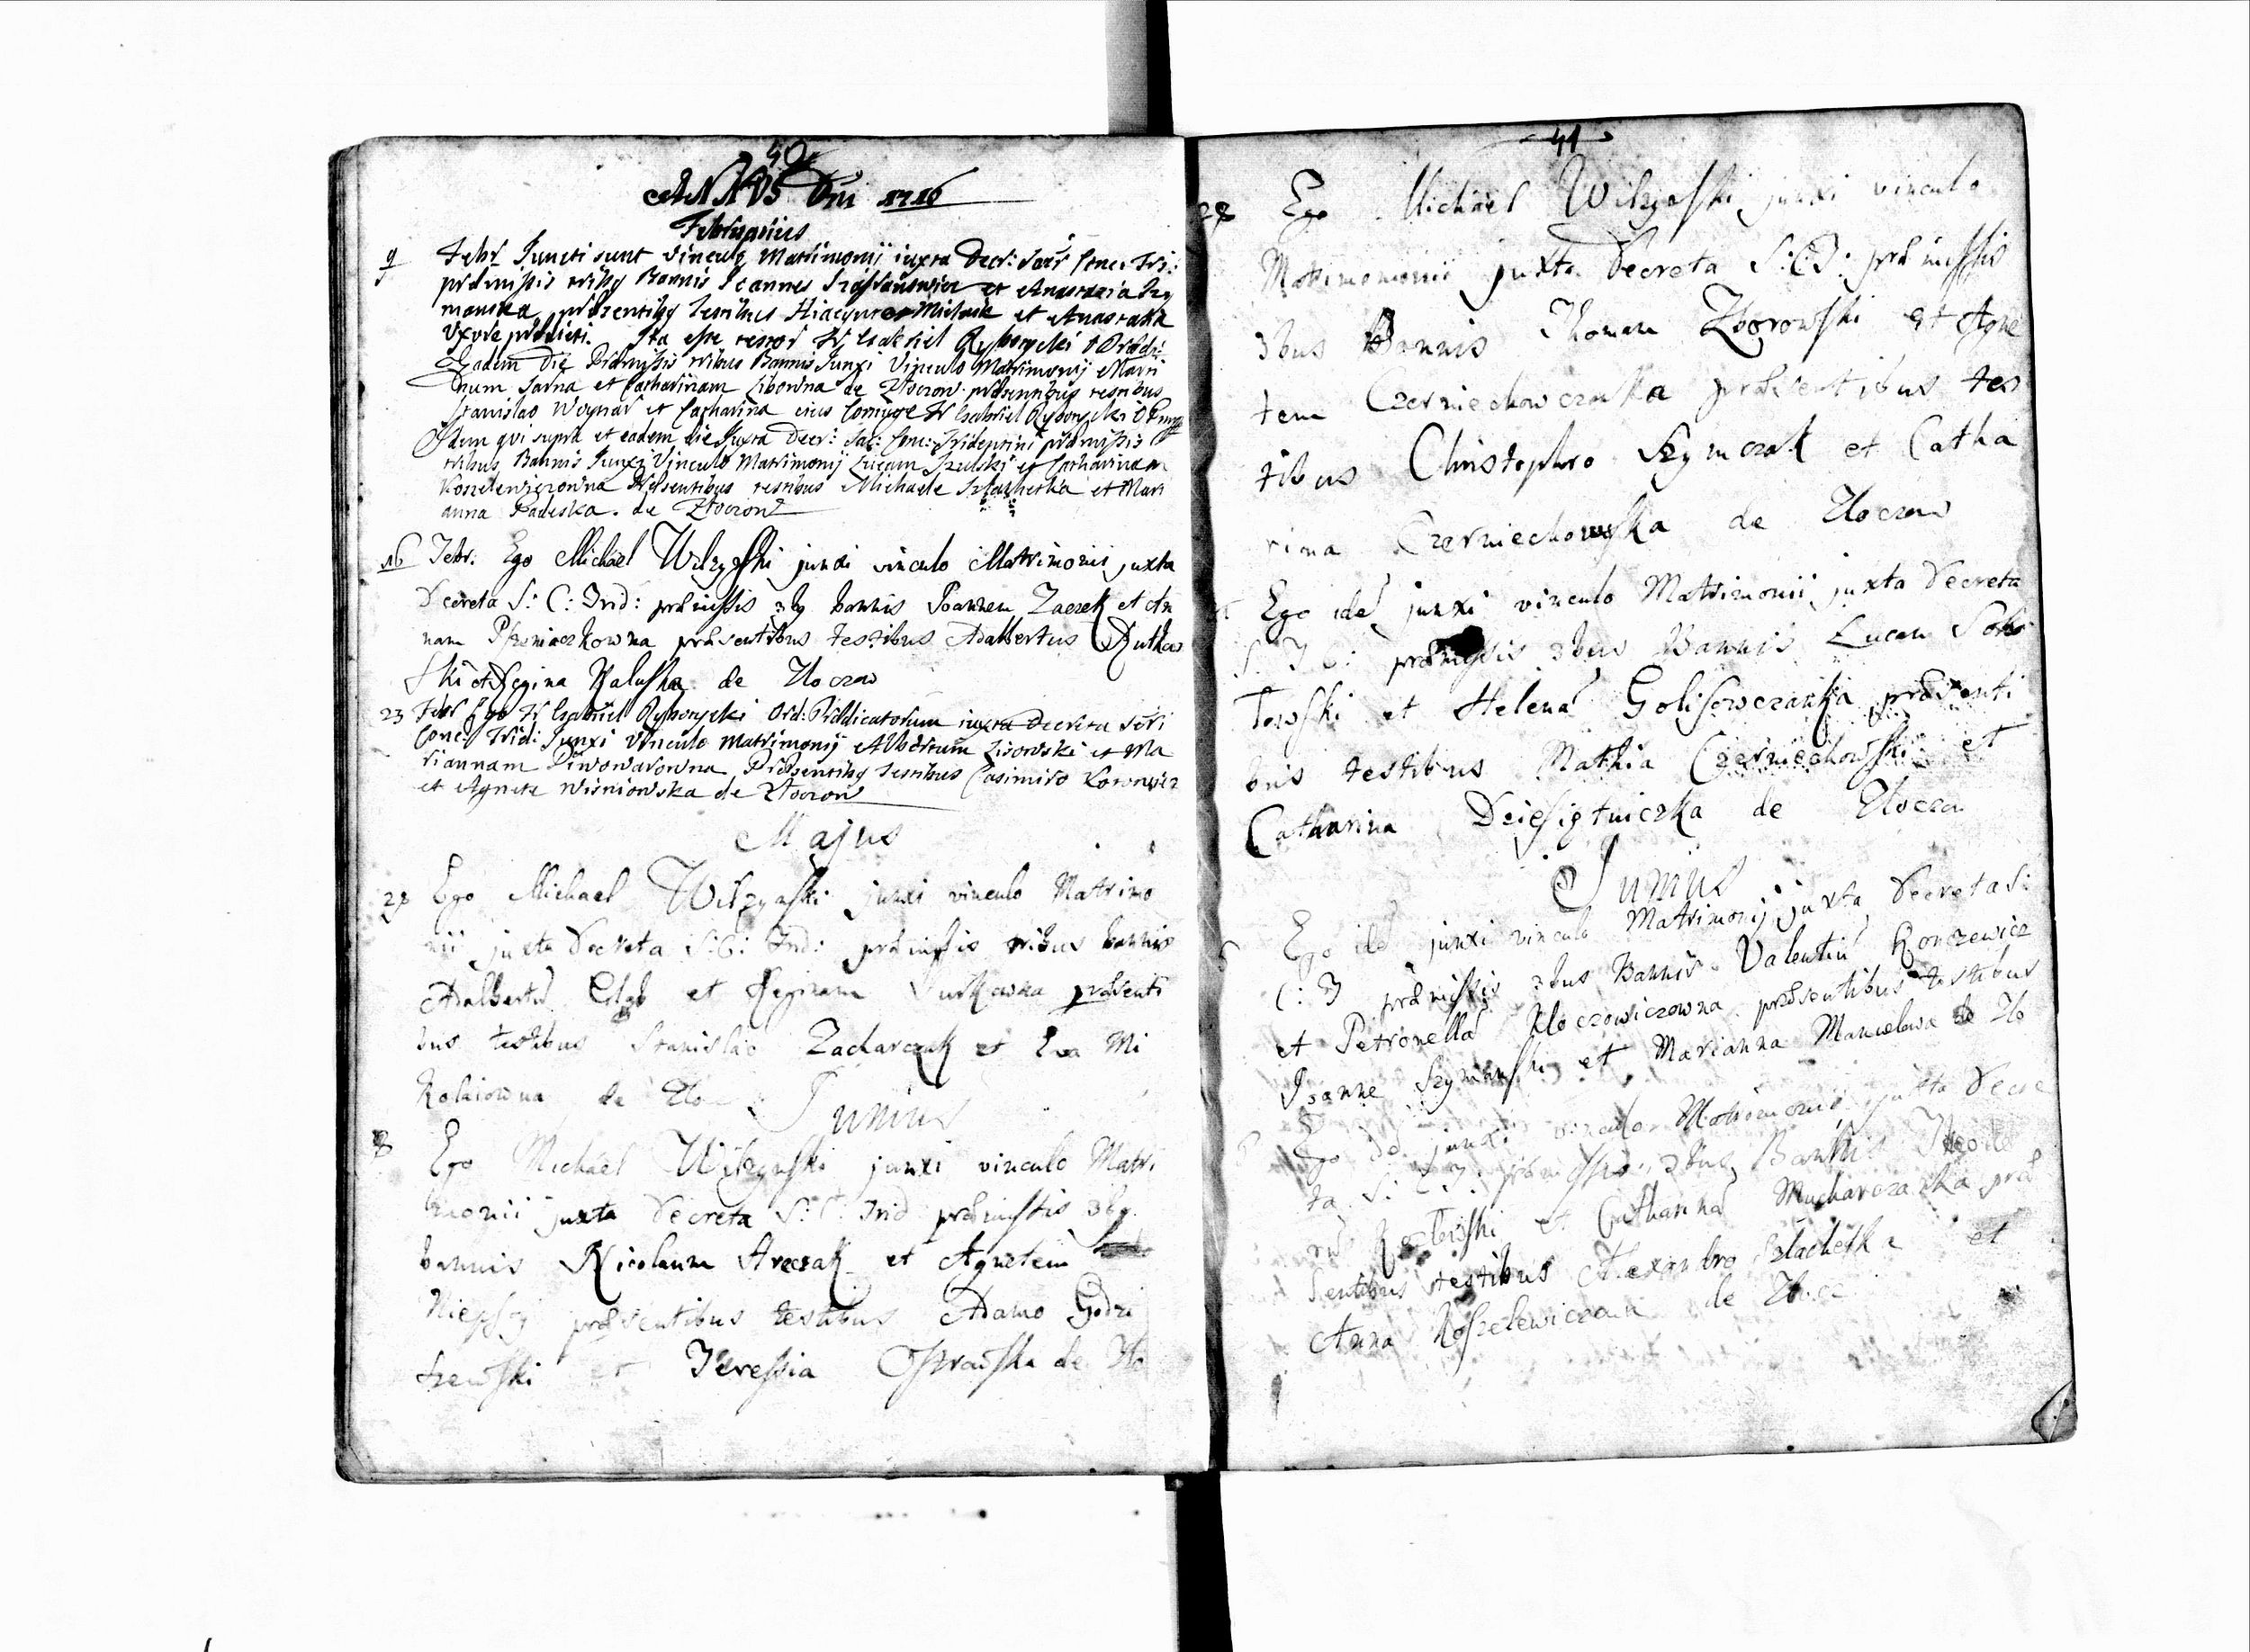 40
ANNVS Dni 1716
Februarius
9 Febr Juncti sunt vinculo Matrimonij iuxta Decr: Sacr Conc: Tri:
præmissis tribq Bannis Joannes et Anastazia Szy
manska præsentibq testibus Hiacynto Michnik et Anastazia
Vxore prædicti. Ita esse testor Fr Gabriel Rybonycki O Prædi:
Eadem Die Præmissis tribus Bannis Junxi Vinculo Matrimonij Marti
num Sarna et Catharinam Cibowna de Złoczow præsentibus testibus
Stanislao Woynar et Catharina eius Coniuge Fr Gabriel Rybonycki O
Idem qui supra et eadem die Juxta Decr: Sac: Conc: Tridentini præmissis
tribus Bannis Junxi Vinculo Matrimonij Lucam Szulski et Catharinam
Koszelewiczowna Præsentibus testibus Michaele Szlachetka et Mari
anna Radeska. de Złoczow
16 Febr: Ego Michael Wilzynski junxi vinculo Matrimonii juxta
Decreta S: C: Trid: præmissis 3bq bannis Joannem Zaczek et An
nam Pszeniaczkowna præsentibus testibus Adalbertus Rutkow
ski et Regina Kaluska de Zloczow
23 Febr Ego Fr Gabriel Rybonycki Ord: Prædicatorum iuxta Decreta Scti
Conc: Trid: Junxi Vinculo Matrimonij Albertum Lisowski et Ma
riannam Piwowarowna Præsentibq testibus Casimiro Korowicz
et Agnete Wisniowska de Złoczow
Majus
28 Ego Michael Wilzynski junxi vinculo Matrimo
nii juxta Decreta S: C: Trid: præmissis tribus bannis
Adalbertu et Reginam Turkowna præsenti
bus testibus Stanislao Zacharczuk et Eva Mi
kolaiowna de Zlo
Junius
8 Ego Michael Wilzynski junxi vinculo Matri
monii juxta Decreta S: C: Trid præmissis 3bq
bannis Nicolaum Areczak et Agnetem
præsentibus testibus Adamo Godzi
szewski et Teressia Ostrowska de Zlo
41
28 Ego Michael Wilzynski junxi vinculo
Matrimomonii juxta Decreta S: C: T: præmissis
3bus Bannis Thomam Zborowski et Agne
tem Czerniechowczanka præsentibus tes
tibus Christophoro Szymczak et Catha
rina Czerniechowska de Zloczow
Ego ide junxi vinculo Matrimonii juxta Decreta
S: T C: præmissis 3bus Bannis Lucam Soko
lowski et Helena Golisowczanka præsenti
bus testibus Mathia Czerniechowski et
Catharina Dziesiętniczka de Zloczow
Junius
Ego ide junxi vinculo Matrimonij juxta Decreta S:
C: T præmissis 3bus Bannis Valentiu Konczewicz
et Petronella Kloczowiczowna præsentibus testibus
Joanne Szymanski et Marianna Mancelowa de Zlo
Ego ide junxi vinculo Matrimonii juxta Decre
ta S: C T: præmissis 3bus Bannis Theodo
ru Kozlowski et Catharina Mucharczanka præ
sentibus testibus Alexandro Szlachetka et
Anna Koszelewiczowna de Zlocz